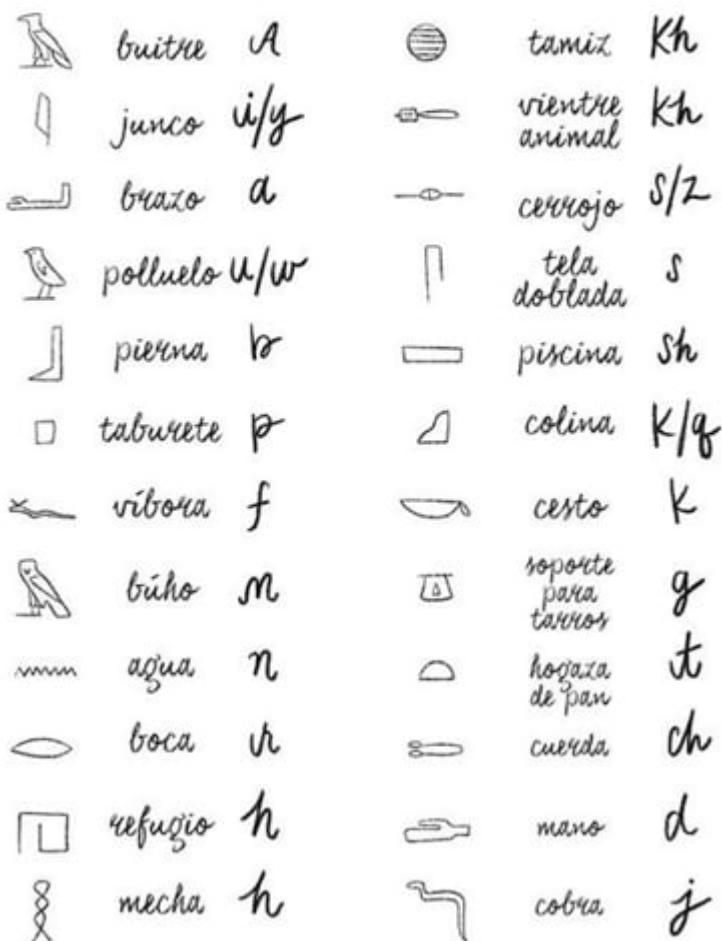 buitre A
junco i/y
brazo a
polluelo u/w
pierna b
taburete p
víbora f
búho m
agua n
boca r
refugio h
mecha h
tamiz Kh
vientre
animal Kh
cerrojo s/z
tela
doblada s
piscina sh
colina K/q
cesto K
soporte
para
tarros g
hogaza
de pan t
cuerda ch
mano d
cobra j